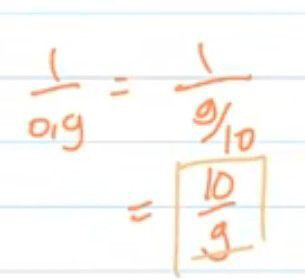 1/0,9 = 1/9/10
= 10/9